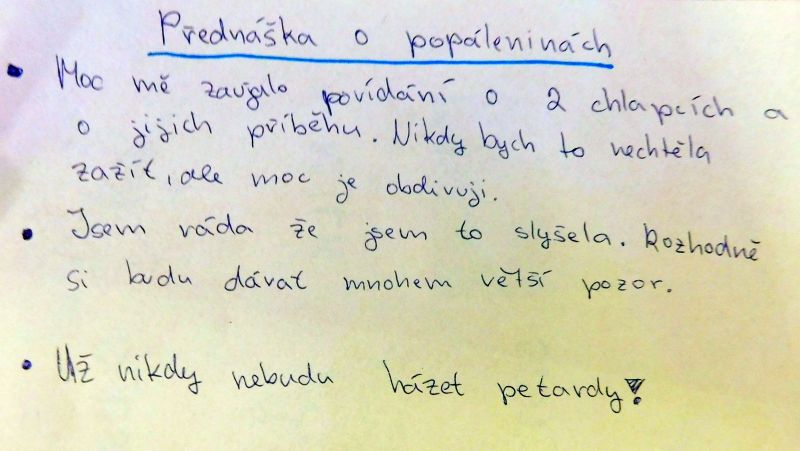 Přednáška o popáleninách
• Moc mě zaujalo povídání o 2 chlapcích a
o jijich příběhu. Nikdy bych to nechtěla
zažít, ale moc je obdivuji.
• Jsem ráda že jsem to slyšela. Rozhodně
si budu dávat mnohem větší pozor.
• Už nikdy nebudu házet petardy!